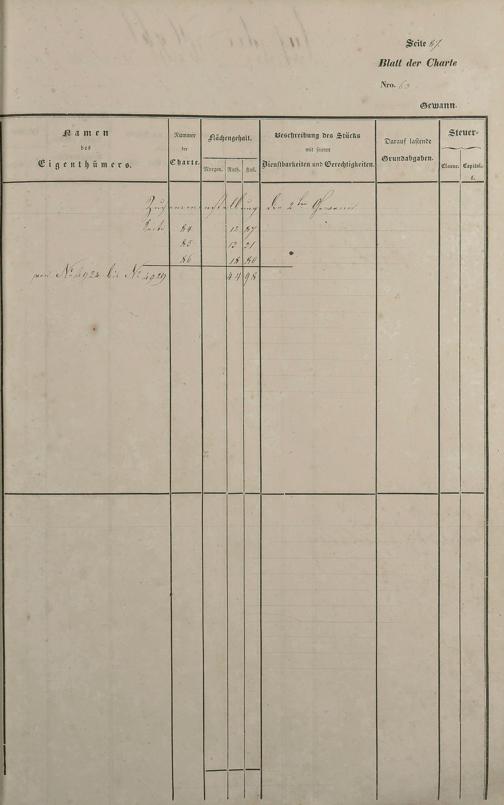 Seite 87
Blatt der Charte
Nro. 63
Gewann.
Namen
des
Eigenthümers.
Nummer
der
Charte.
Flächengehalt.
Morgen. Ruth. Fuß.
Beschreibung des Stücks
mit seinen
Dienstbarkeiten und Gerechtigkeiten.
Darauf lastende
Grundabgaben.
Steuer-
Classe. Capital.
Zusammenstellung der 2ten Gewann
Seite 84 12 87
85 13 21
86 18 80
von No 4924 bis No 4929 44 98